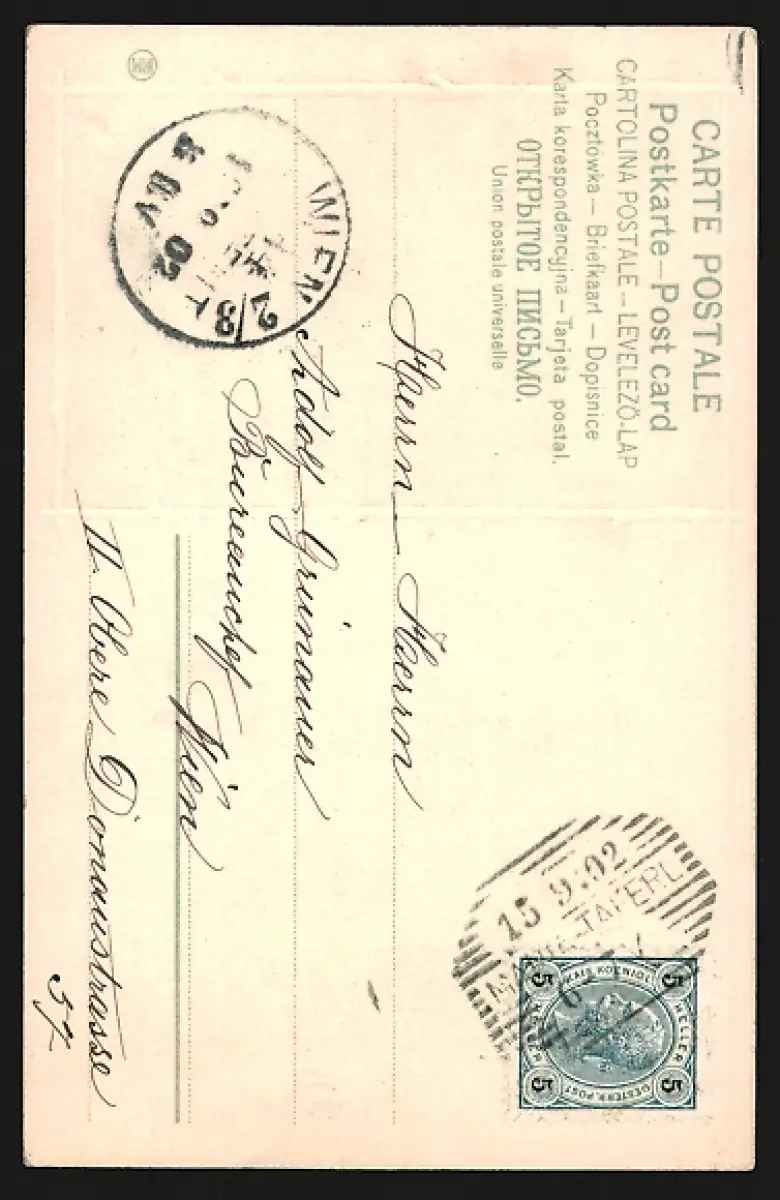 CARTE POSTALE
Postkarte — Post card
CARTOLINA POSTALE — LEVELEZŐ-LAP
Pocztówka — Briefkaart — Dopisnice
Karta korespondencyjna — Tarjeta postal.
ОТКРЫТОЕ ПИСЬМО.
Union postale universelle
15 9:02
MARIA-TAFERL
5 5
KAIS KOENIGL
HELLER HELLER
OESTERR. POST
5 5
WIEN
2/3
02
Herrn — Herrn
Adolf Grünauer
Bureauchef
Wien
II. Obere Donaustrasse
57